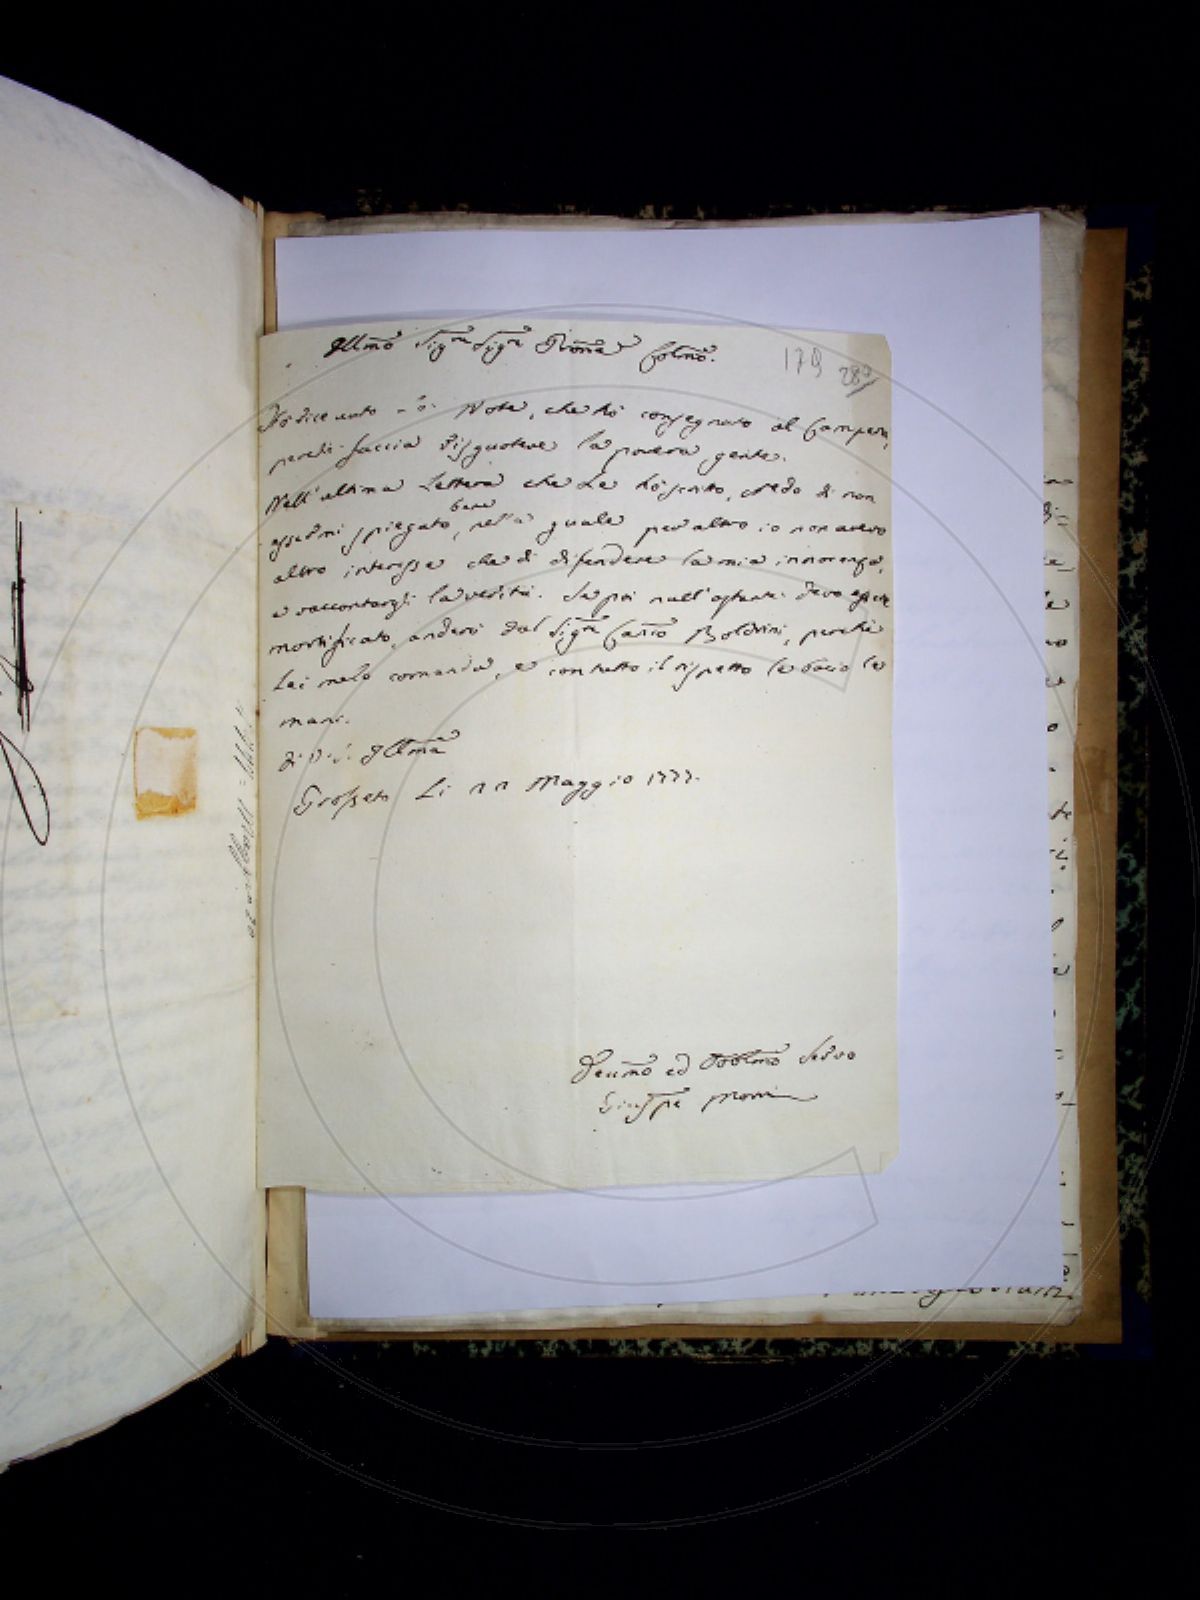 Illmo Sigre Sigre Prone Colmo.
179 287
Ho ricevuto Note, che hò consegnato al
faccia la povera gente.
Nell'ultima Lettera che Le hò scritto, credo di non
essermi spiegato bene, nella quale per altro io non avevo
altro interesse che di difendere la mia innocenza,
e raccontargli la verità. Se poi null'ostante devo essere
mortificato, anderò dal Sigre Canco Boldrini, perchè
Lei me lo comanda, e con tutto il rispetto le bacio le
mani.
di V. S. Illma
Grosseto Li 11 Maggio 1777.
Devmo ed Obblmo Servo
Giuseppe